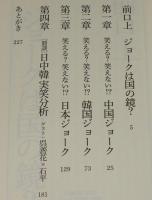 前口上 ジョークは国の鏡? 5
第一章 笑える?笑えない!? 中国ジョーク 25
第二章 笑える?笑えない!? 韓国ジョーク 73
第三章 笑える?笑えない!? 日本ジョーク 129
第四章 日中韓実笑分析 呉善花 石平 181
あとがき 227